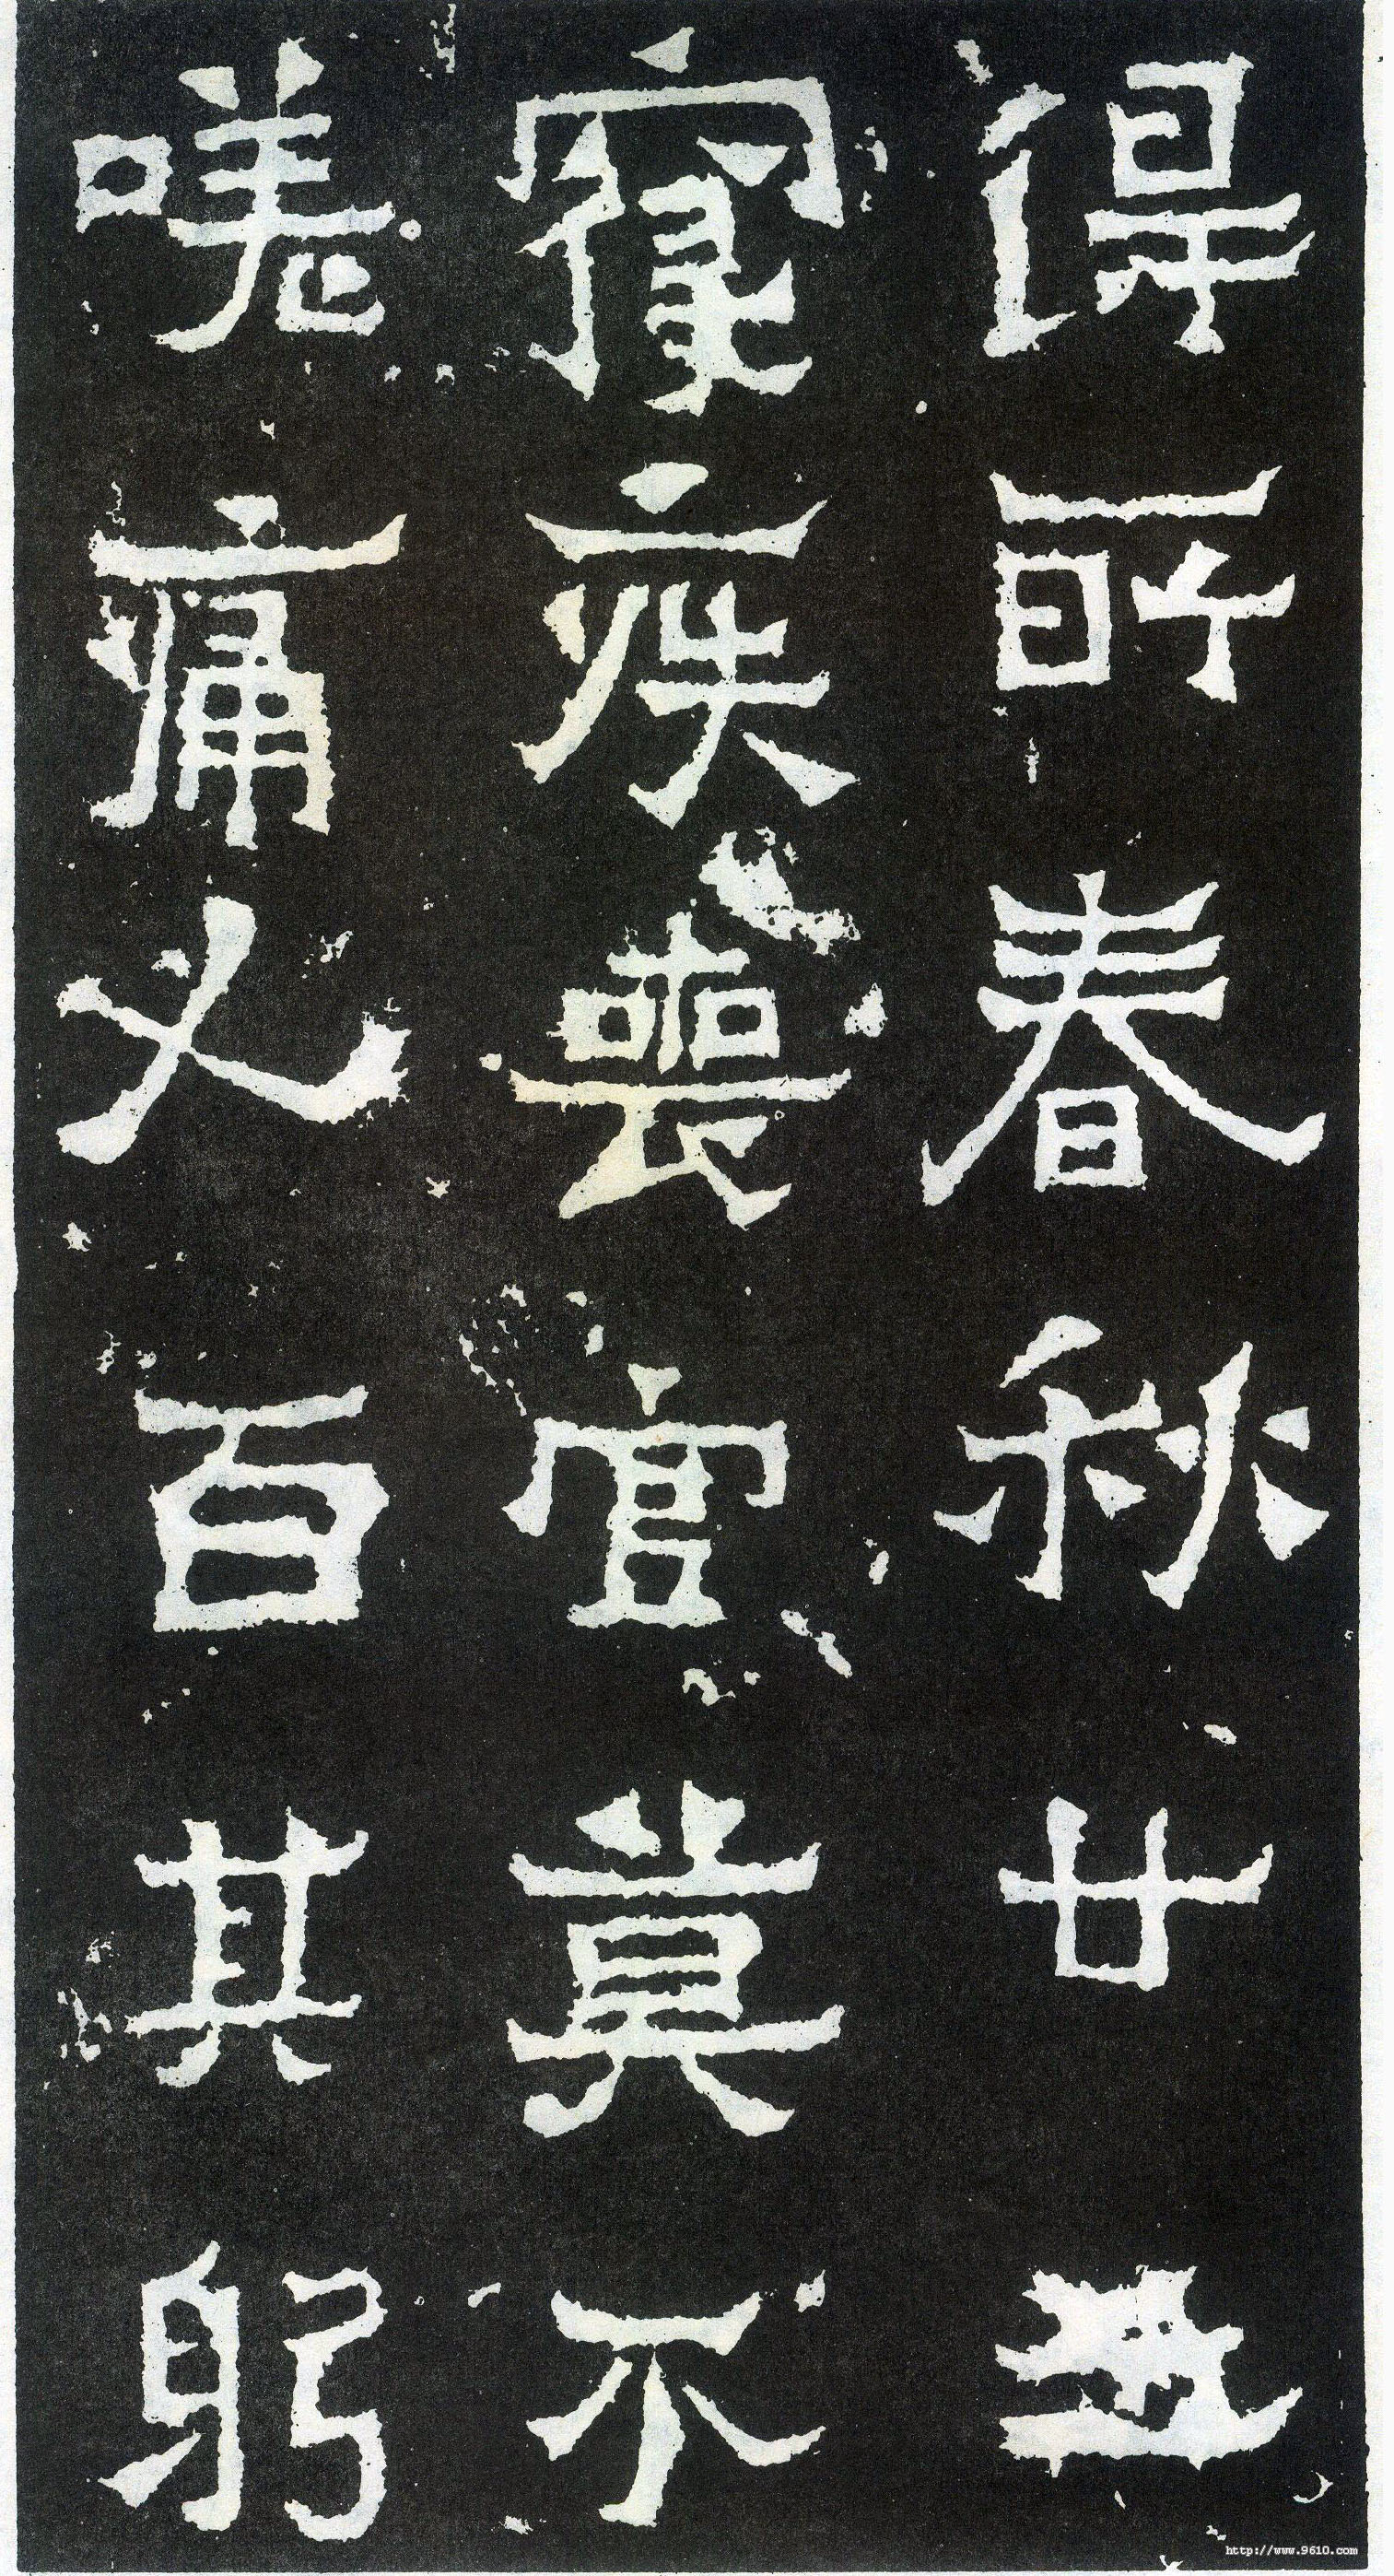 得所春秋廿五
寢疾喪官莫不
嗟痛人百其躬
http://www.9610.com